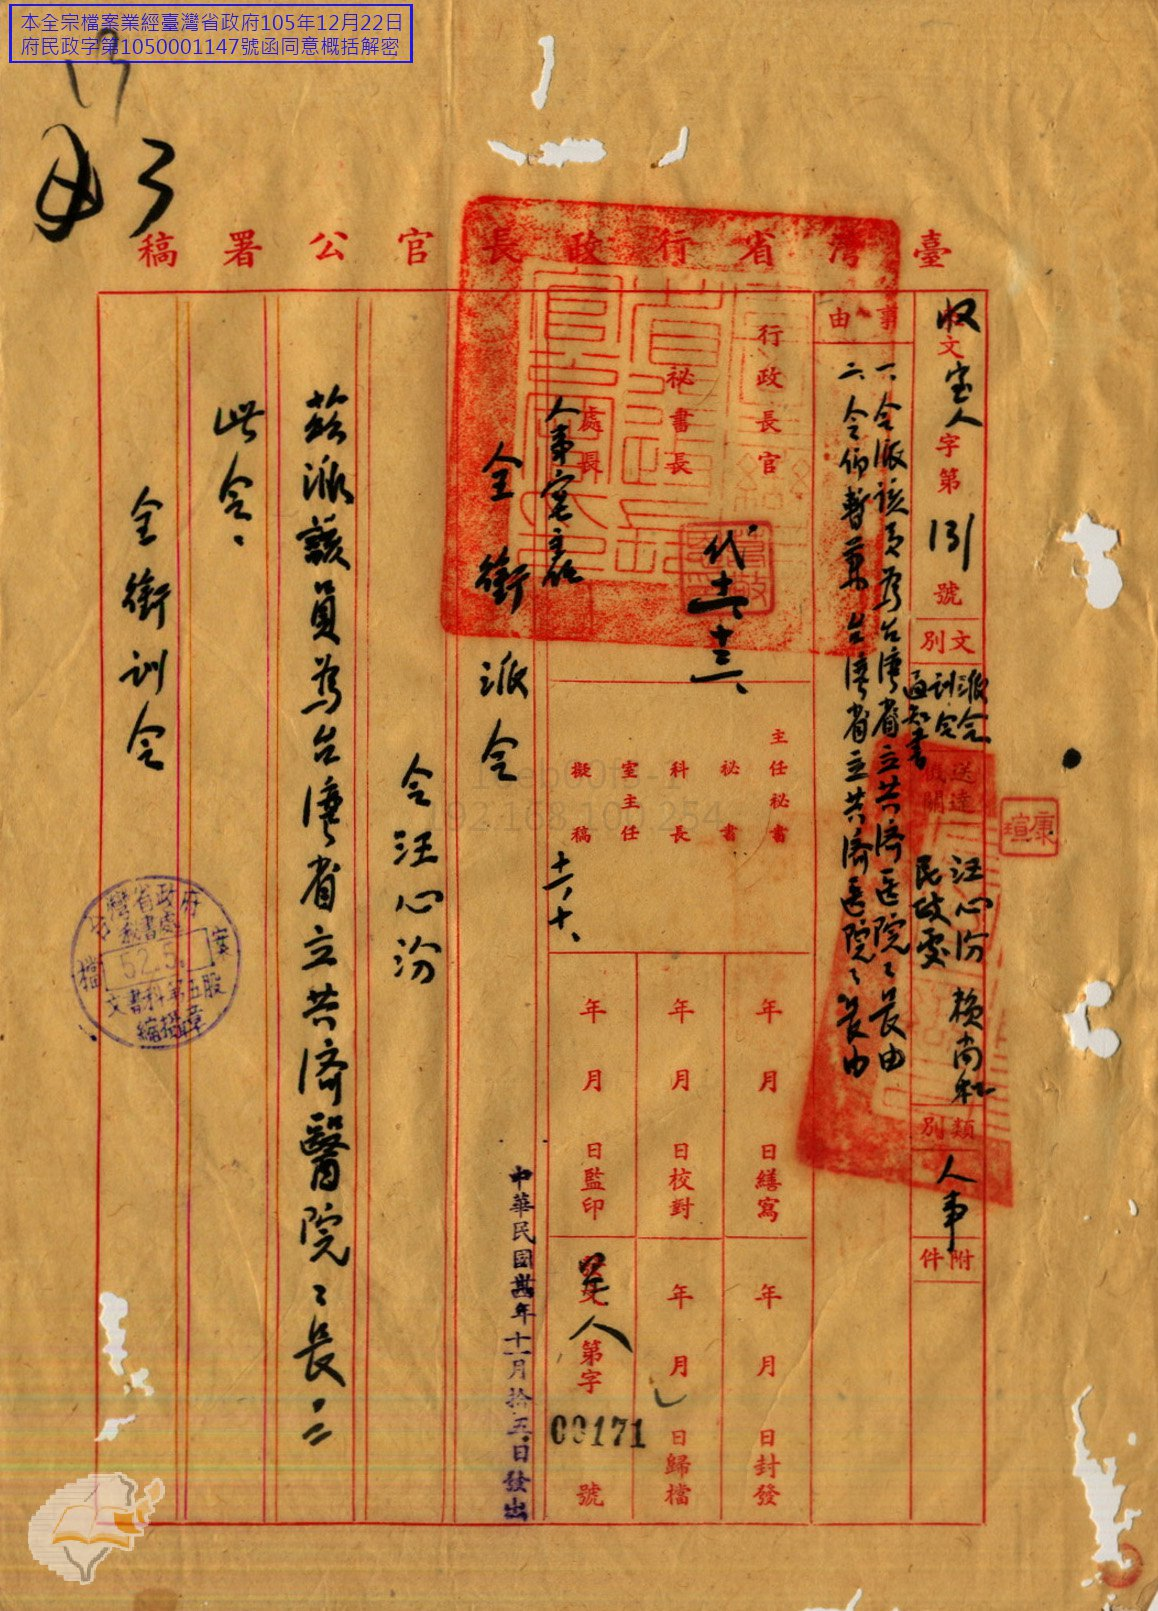 本全宗檔案業經臺灣省政府105年12月22日
府民政字第1050001147號函同意概括解密
臺灣省行政長官公署稿
收文 字第 131 號
文別
派令
訓令
通知書
送達機關
汪心汾 賴尚和
民政處
類別
人事
附件
事由
一、令派該員為台灣省立共濟医院〻長由
二、令仰暫兼台灣省立共濟医院〻長由
行政長官
秘書長
代
處長
人事室主任
主任秘書
秘書
科長
室主任
擬稿
年 月 日繕寫
年 月 日校對
年 月 日監印
年 月 日封發
年 月 日歸檔
人
第字
00171
號
中華民國卅年十一月拾五日發出
全銜派令
令汪心汾
茲派該員為台灣省立共濟醫院〻長。
此令。
全銜訓令
康瑄
台灣省政府
秘書處
檔
案
52.5.
文書科第五股